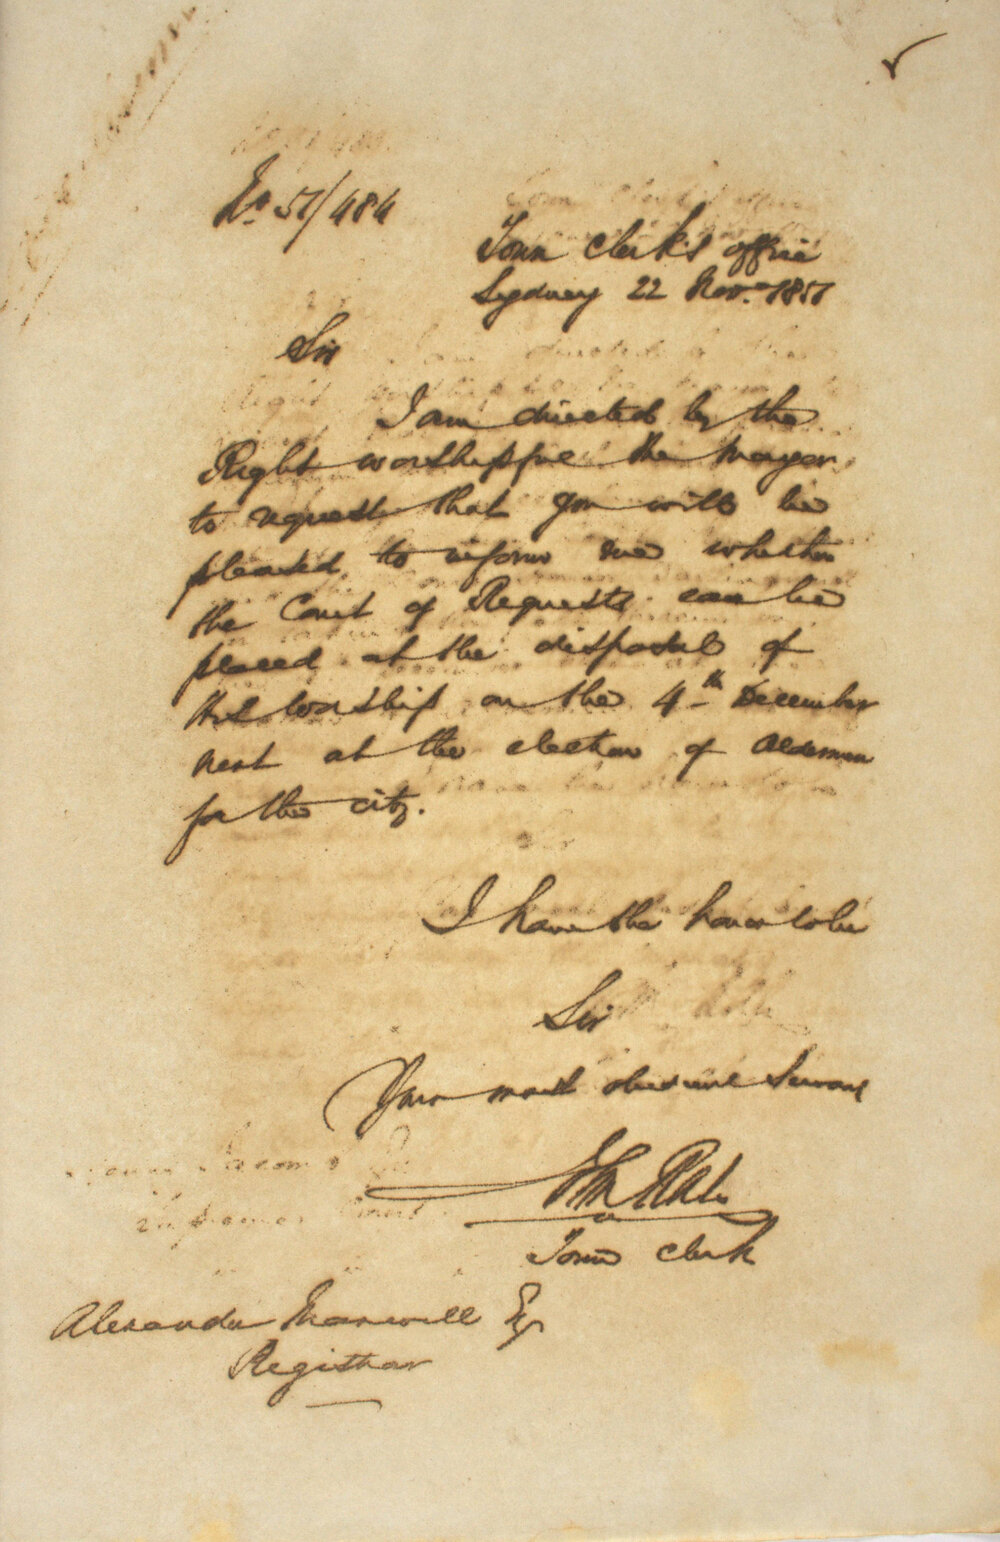 No 51/484
Town Clerk's office
Sydney 22 Novr 1851
Sir
I am directed by the
Right worshipful the Mayor
to request that you will be
pleased to inform me whether
the Court of Requests can be
placed at the disposal of
His Worship on the 4th December
next at the election of Aldermen
for the city.
I have the honor to be
Sir
Your most obedient Servant
Town Clerk
Alexander Maxwell Esqr
Registrar